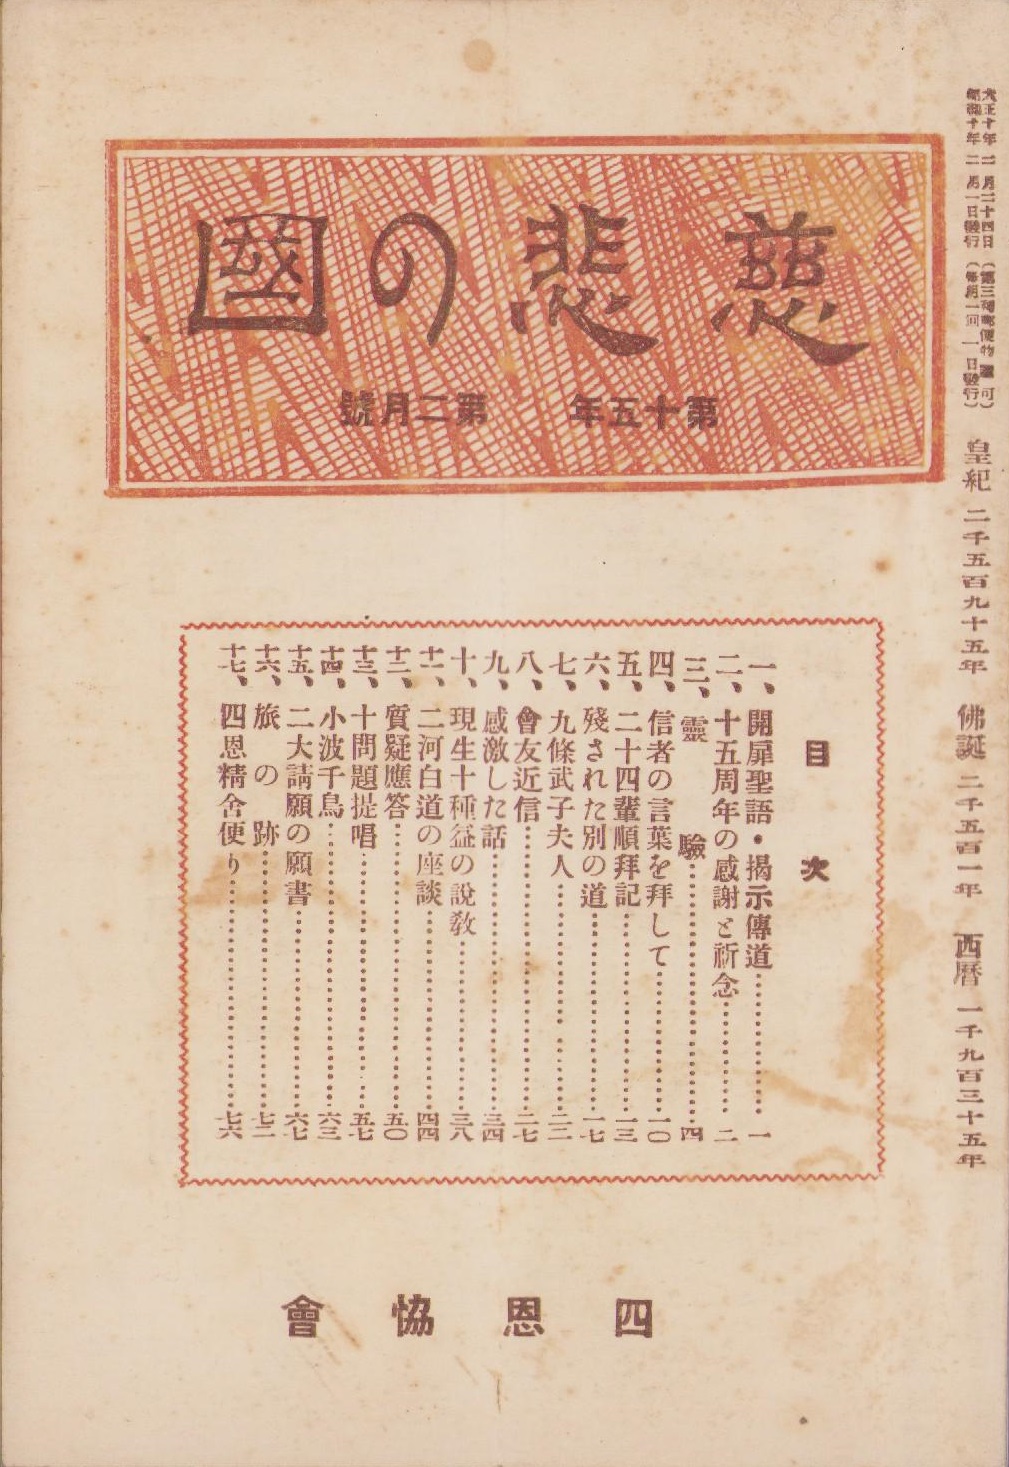 大正十年二月二十四日（第三種郵便物認可）
昭和十年二月一日發行（每月一回一日發行）
皇紀 二千五百九十五年 佛誕 二千五百一年 西曆 一千九百三十五年
慈悲の國
第十五年 第二月號
目次
一、開扉聖語・揭示傳道……一
二、十五周年の感謝と祈念……二
三、靈驗……四
四、信者の言葉を拜して……一〇
五、二十四輩順拜記……一三
六、殘された別の道……一七
七、九條武子夫人……二二
八、會友近信……二七
九、感激した話……三四
十、現生十種益の說敎……三八
十一、二河白道の座談……四四
十二、質疑應答……五〇
十三、十問題提唱……五七
十四、小波千鳥……六三
十五、二大請願の願書……六七
十六、旅の跡……七二
十七、四恩精舍便り……七六
四恩協會